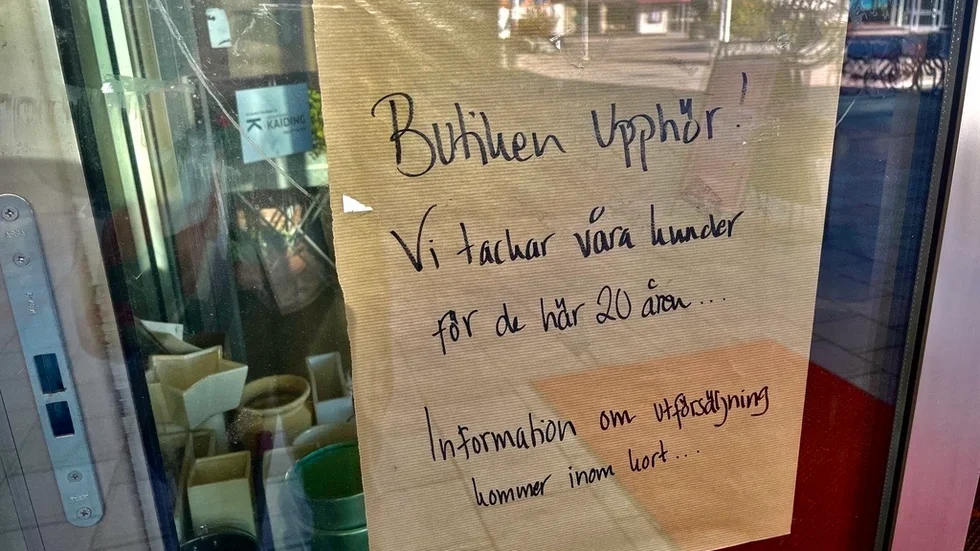 KAIDING
Butiken Upphör!
Vi tackar våra kunder
för de här 20 åren...
Information om utförsäljning
kommer inom kort...